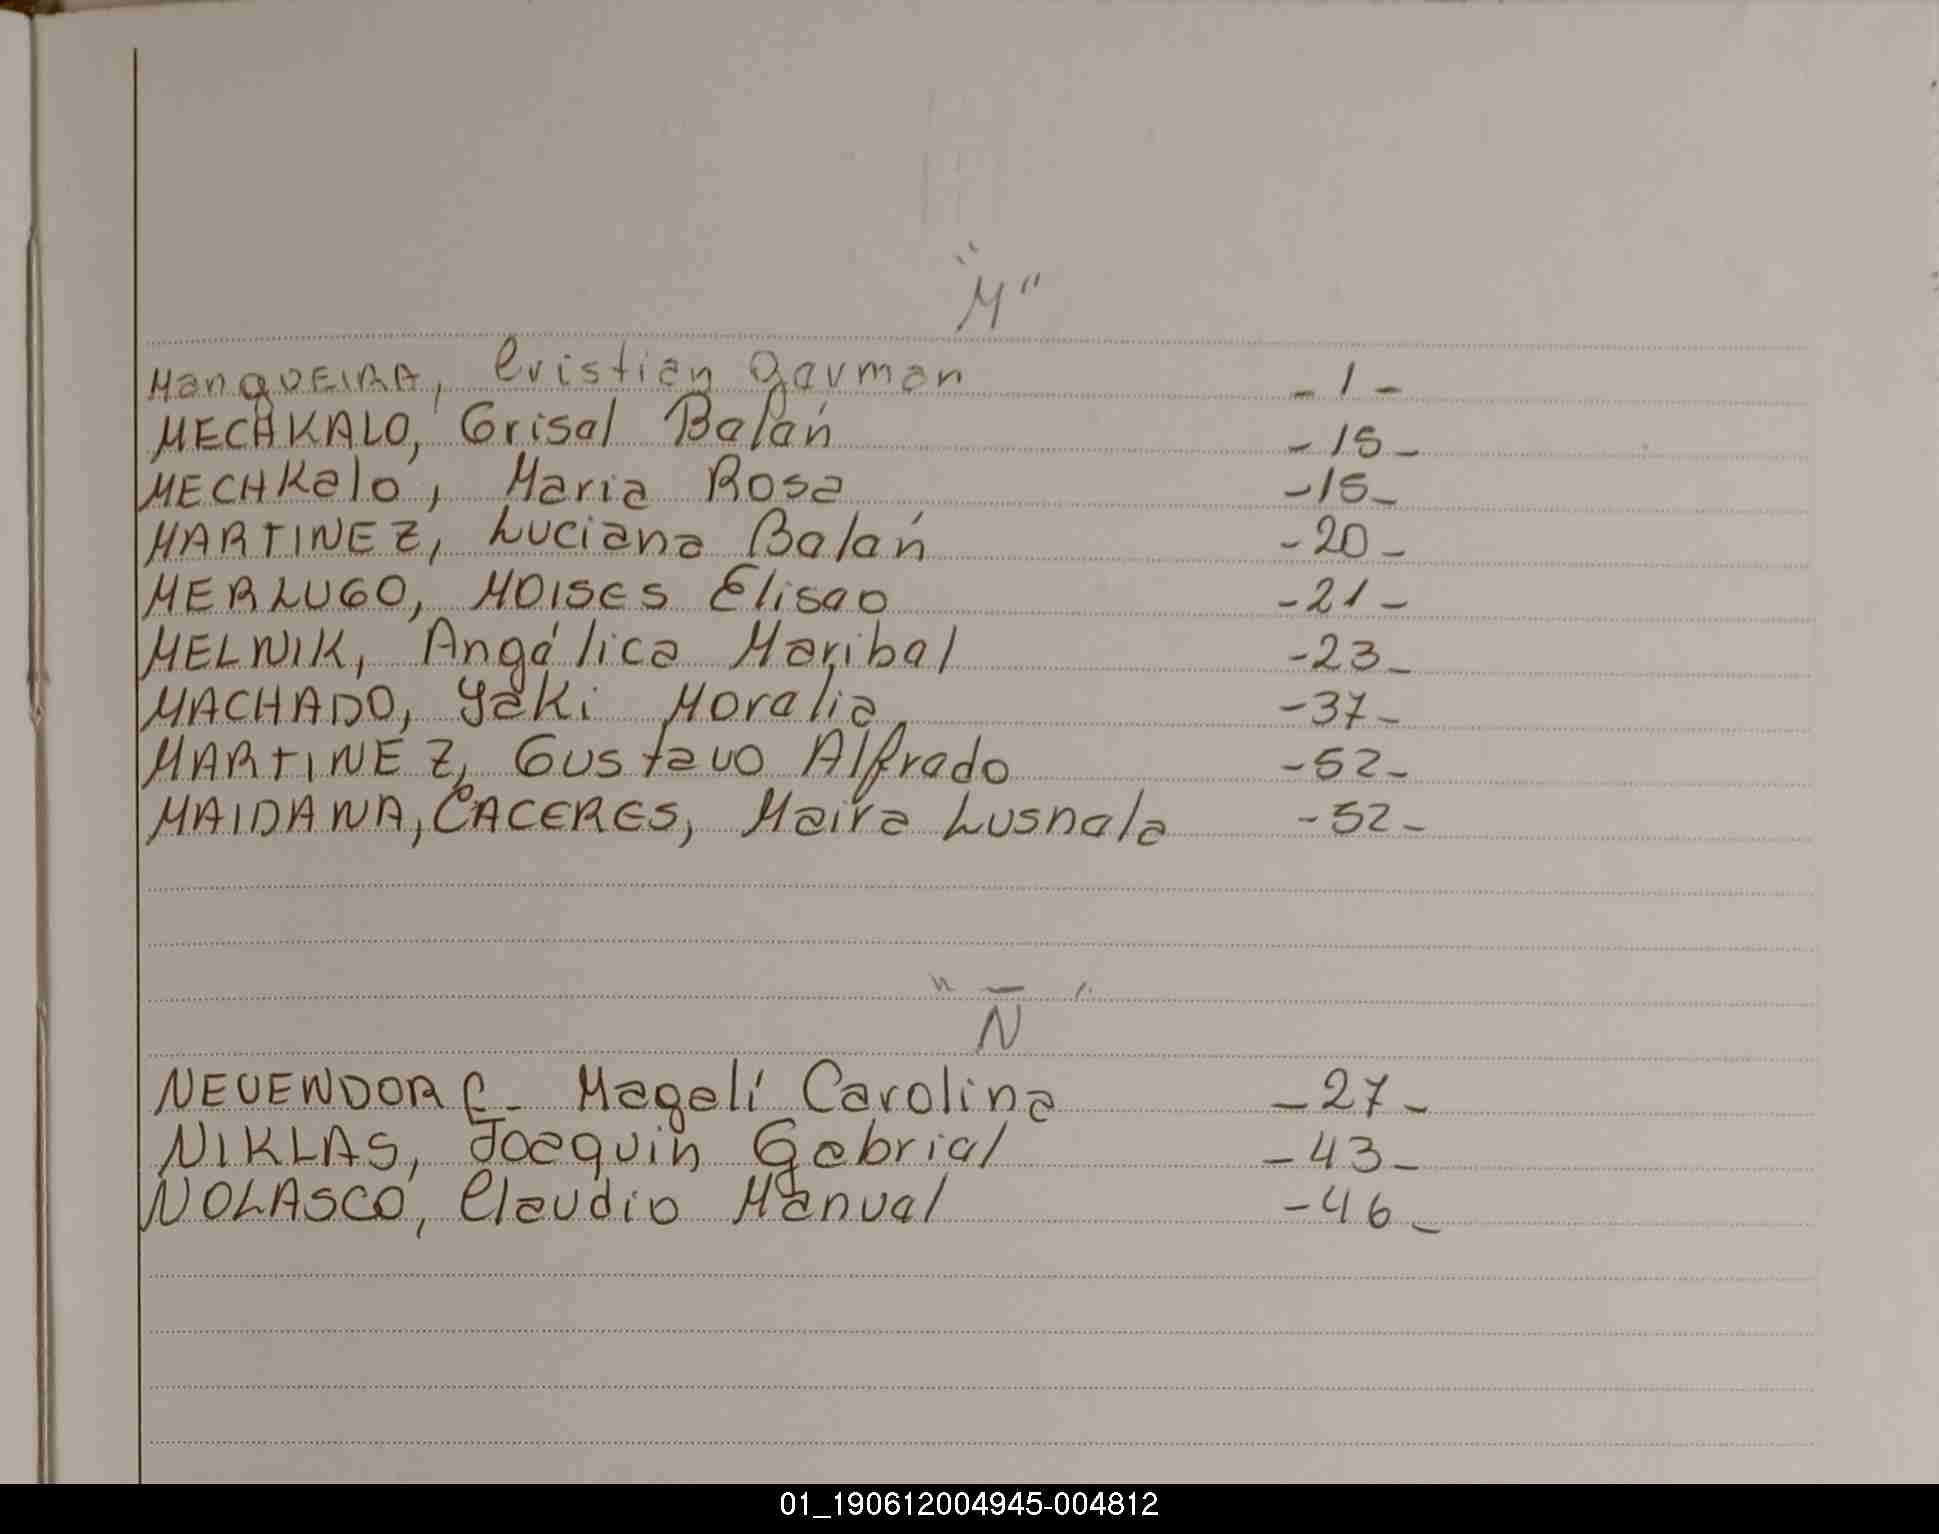 "M"
MANQUEIRA, Cristian German - 1 -
MECHKALO, Grisel Belén - 15 -
MECHKALO, Maria Rosa - 15 -
MARTINEZ, Luciana Belén - 20 -
MERLUGO, MOISES Eliseo - 21 -
MELNIK, Angélica Maribel - 23 -
MACHADO, Yaki Morelia - 37 -
MARTINEZ, Gustavo Alfredo - 52 -
MAIDANA, CACERES, Maira Lusnela - 52 -
"Ñ"
NEUENDORF - Magalí Carolina - 27 -
NIKLAS, Joaquin Gabriel - 43 -
NOLASCO, Claudio Manuel - 46 -
01_190612004945-004812